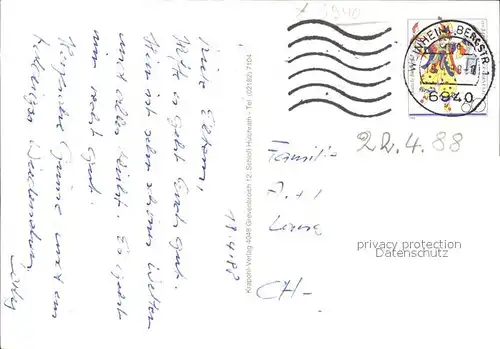 18.4.88
Liebe Eltern,
Hoffe es geht Euch gut.
Hier ist sehr schönes Wetter
und alles blüht. Es geht
mir recht gut.
Herzliche Grüsse und ein
baldiges Wiedersehen.
Krapohl-Verlag 4048 Grevenbroich 12, Schloß Hülchrath - Tel. (02182) 7104
WEINHEIM, BERGSTR 1
6940
22.4.88
Familie
CH-
privacy protection
Datenschutz